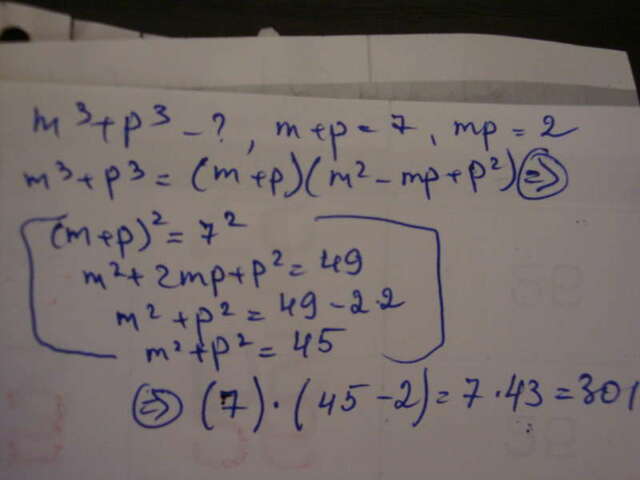 m³+p³-?, m+p=7, mp=2
m³+p³=(m+p)(m²-mp+p²)⇒
(m+p)²=7²
m²+2mp+p²=49
m²+p²=49-2·2
m²+p²=45
⇒(7)·(45-2)=7·43=301